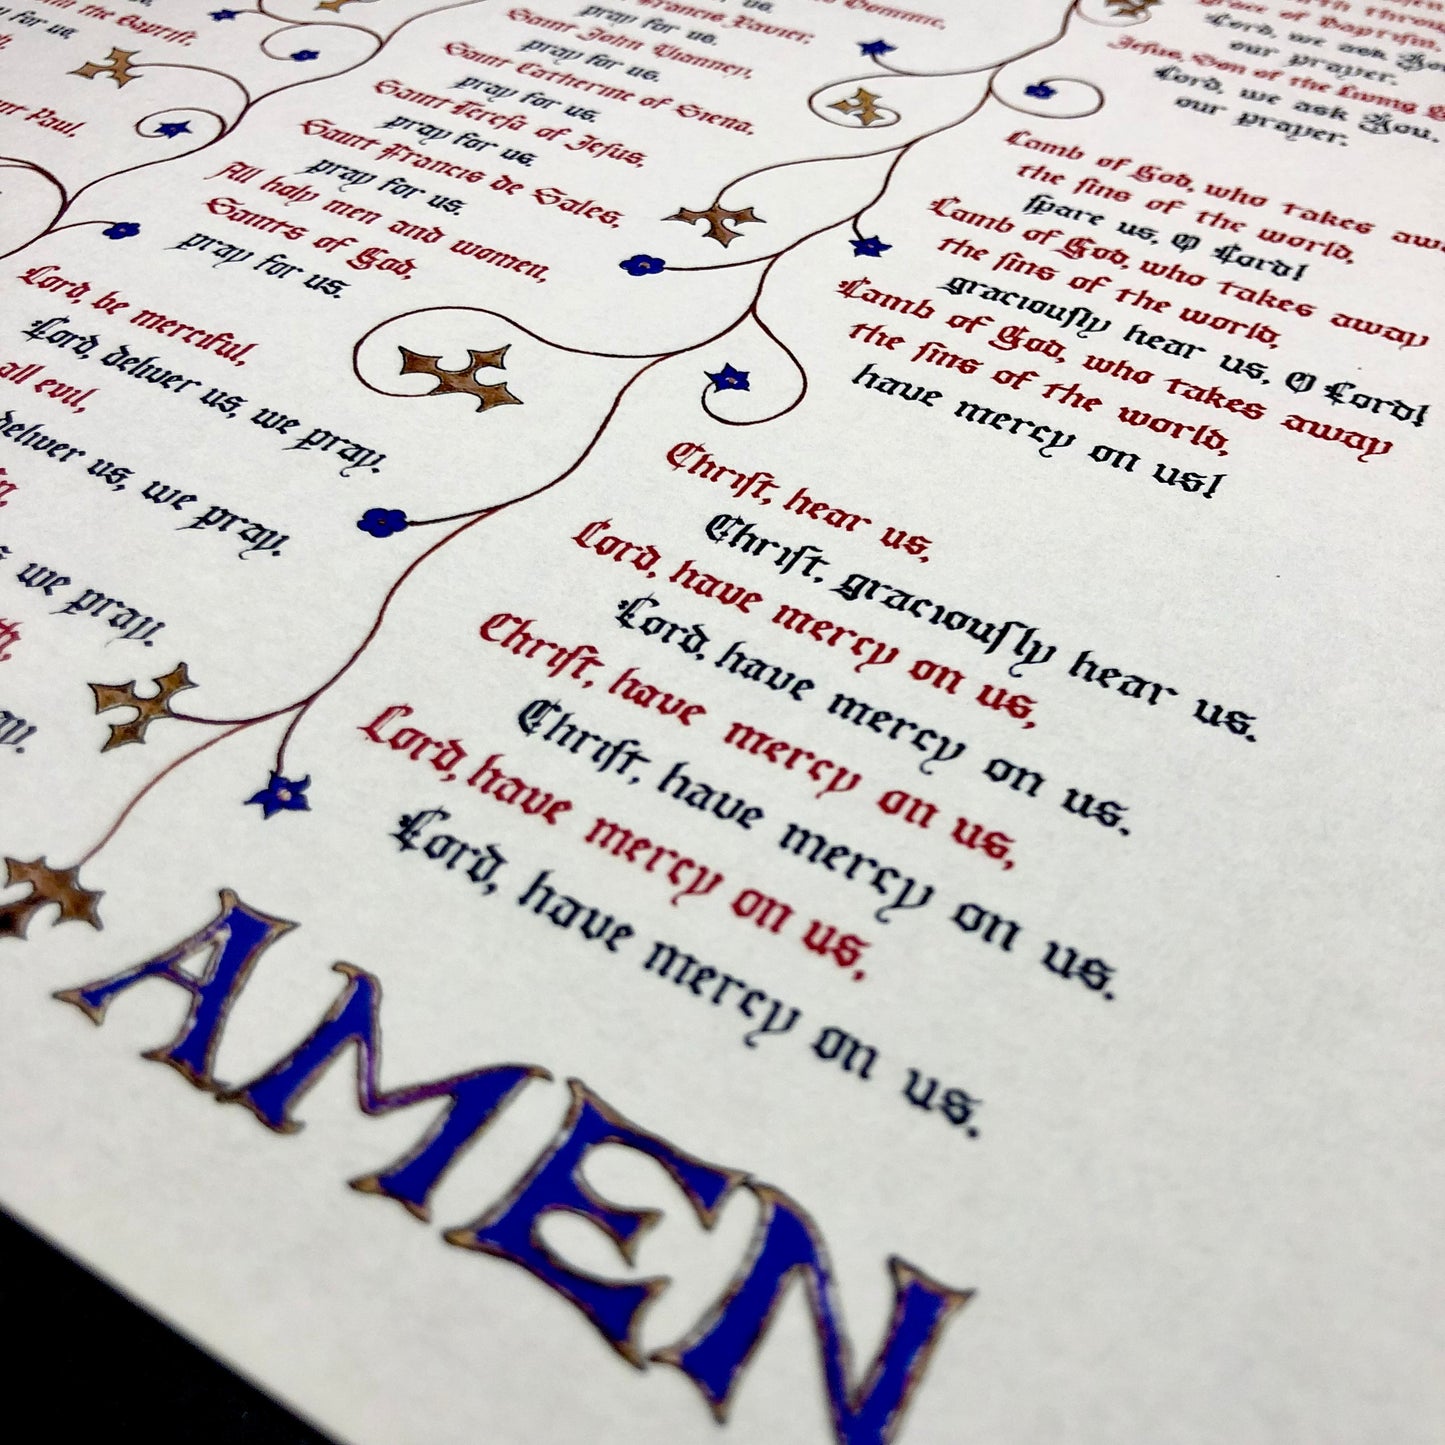 the Baptist,
pray for us,
Saint Paul,
Dominic,
Francis Xavier,
pray for us.
Saint John Vianney,
pray for us.
Saint Catherine of Siena,
pray for us.
Saint Teresa of Jesus,
pray for us.
Saint Francis de Sales,
pray for us.
All holy men and women,
Saints of God,
pray for us.
Lord, be merciful,
Lord, deliver us, we pray.
all evil,
deliver us, we pray.
us we pray.
Grace of Baptism,
Lord, we ask You,
our prayer.
Jesus, Son of the Living
Lord, we ask You,
our prayer.
Lamb of God, who takes
the sins of the world,
spare us, O Lord!
Lamb of God, who takes away
the sins of the world,
graciously hear us, O Lord!
Lamb of God, who takes away
the sins of the world,
have mercy on us!
Christ, hear us,
Christ, graciously hear us.
Lord, have mercy on us,
Lord, have mercy on us.
Christ, have mercy on us,
Christ, have mercy on us.
Lord, have mercy on us,
Lord, have mercy on us.
AMEN